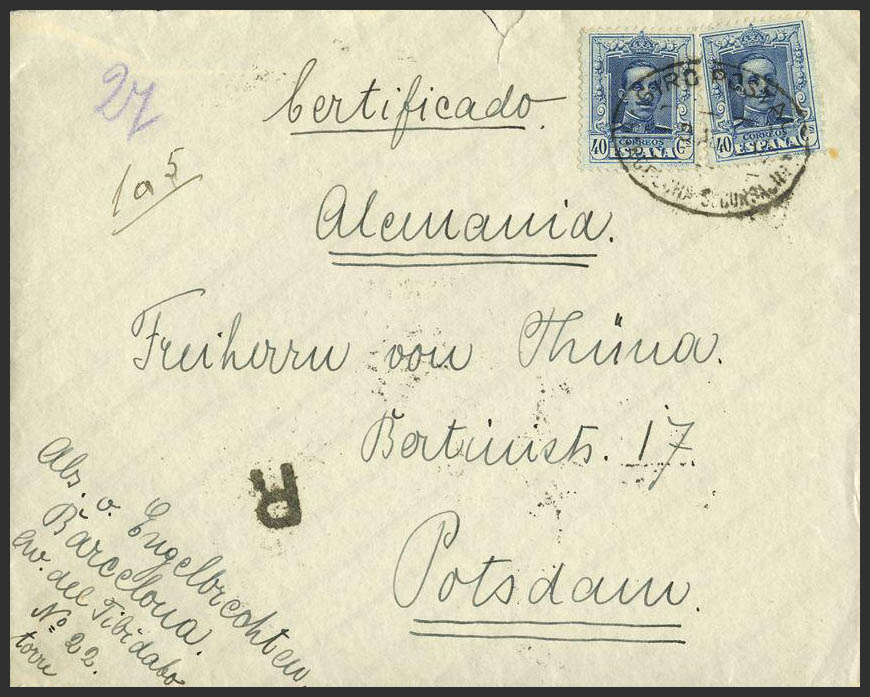 27
1 a 5
Certificado.
40 CORREOS Cs
ESPAÑA
40 CORREOS Cs
ESPAÑA
GYRO POSTAL
Alemania.
Freiherrn von Thüna.
Bertinistr. 17.
Potsdam.
R
Abs. v. Engelbrechten
Barcelona.
Av. del Tibidabo
Nº 22.
torre